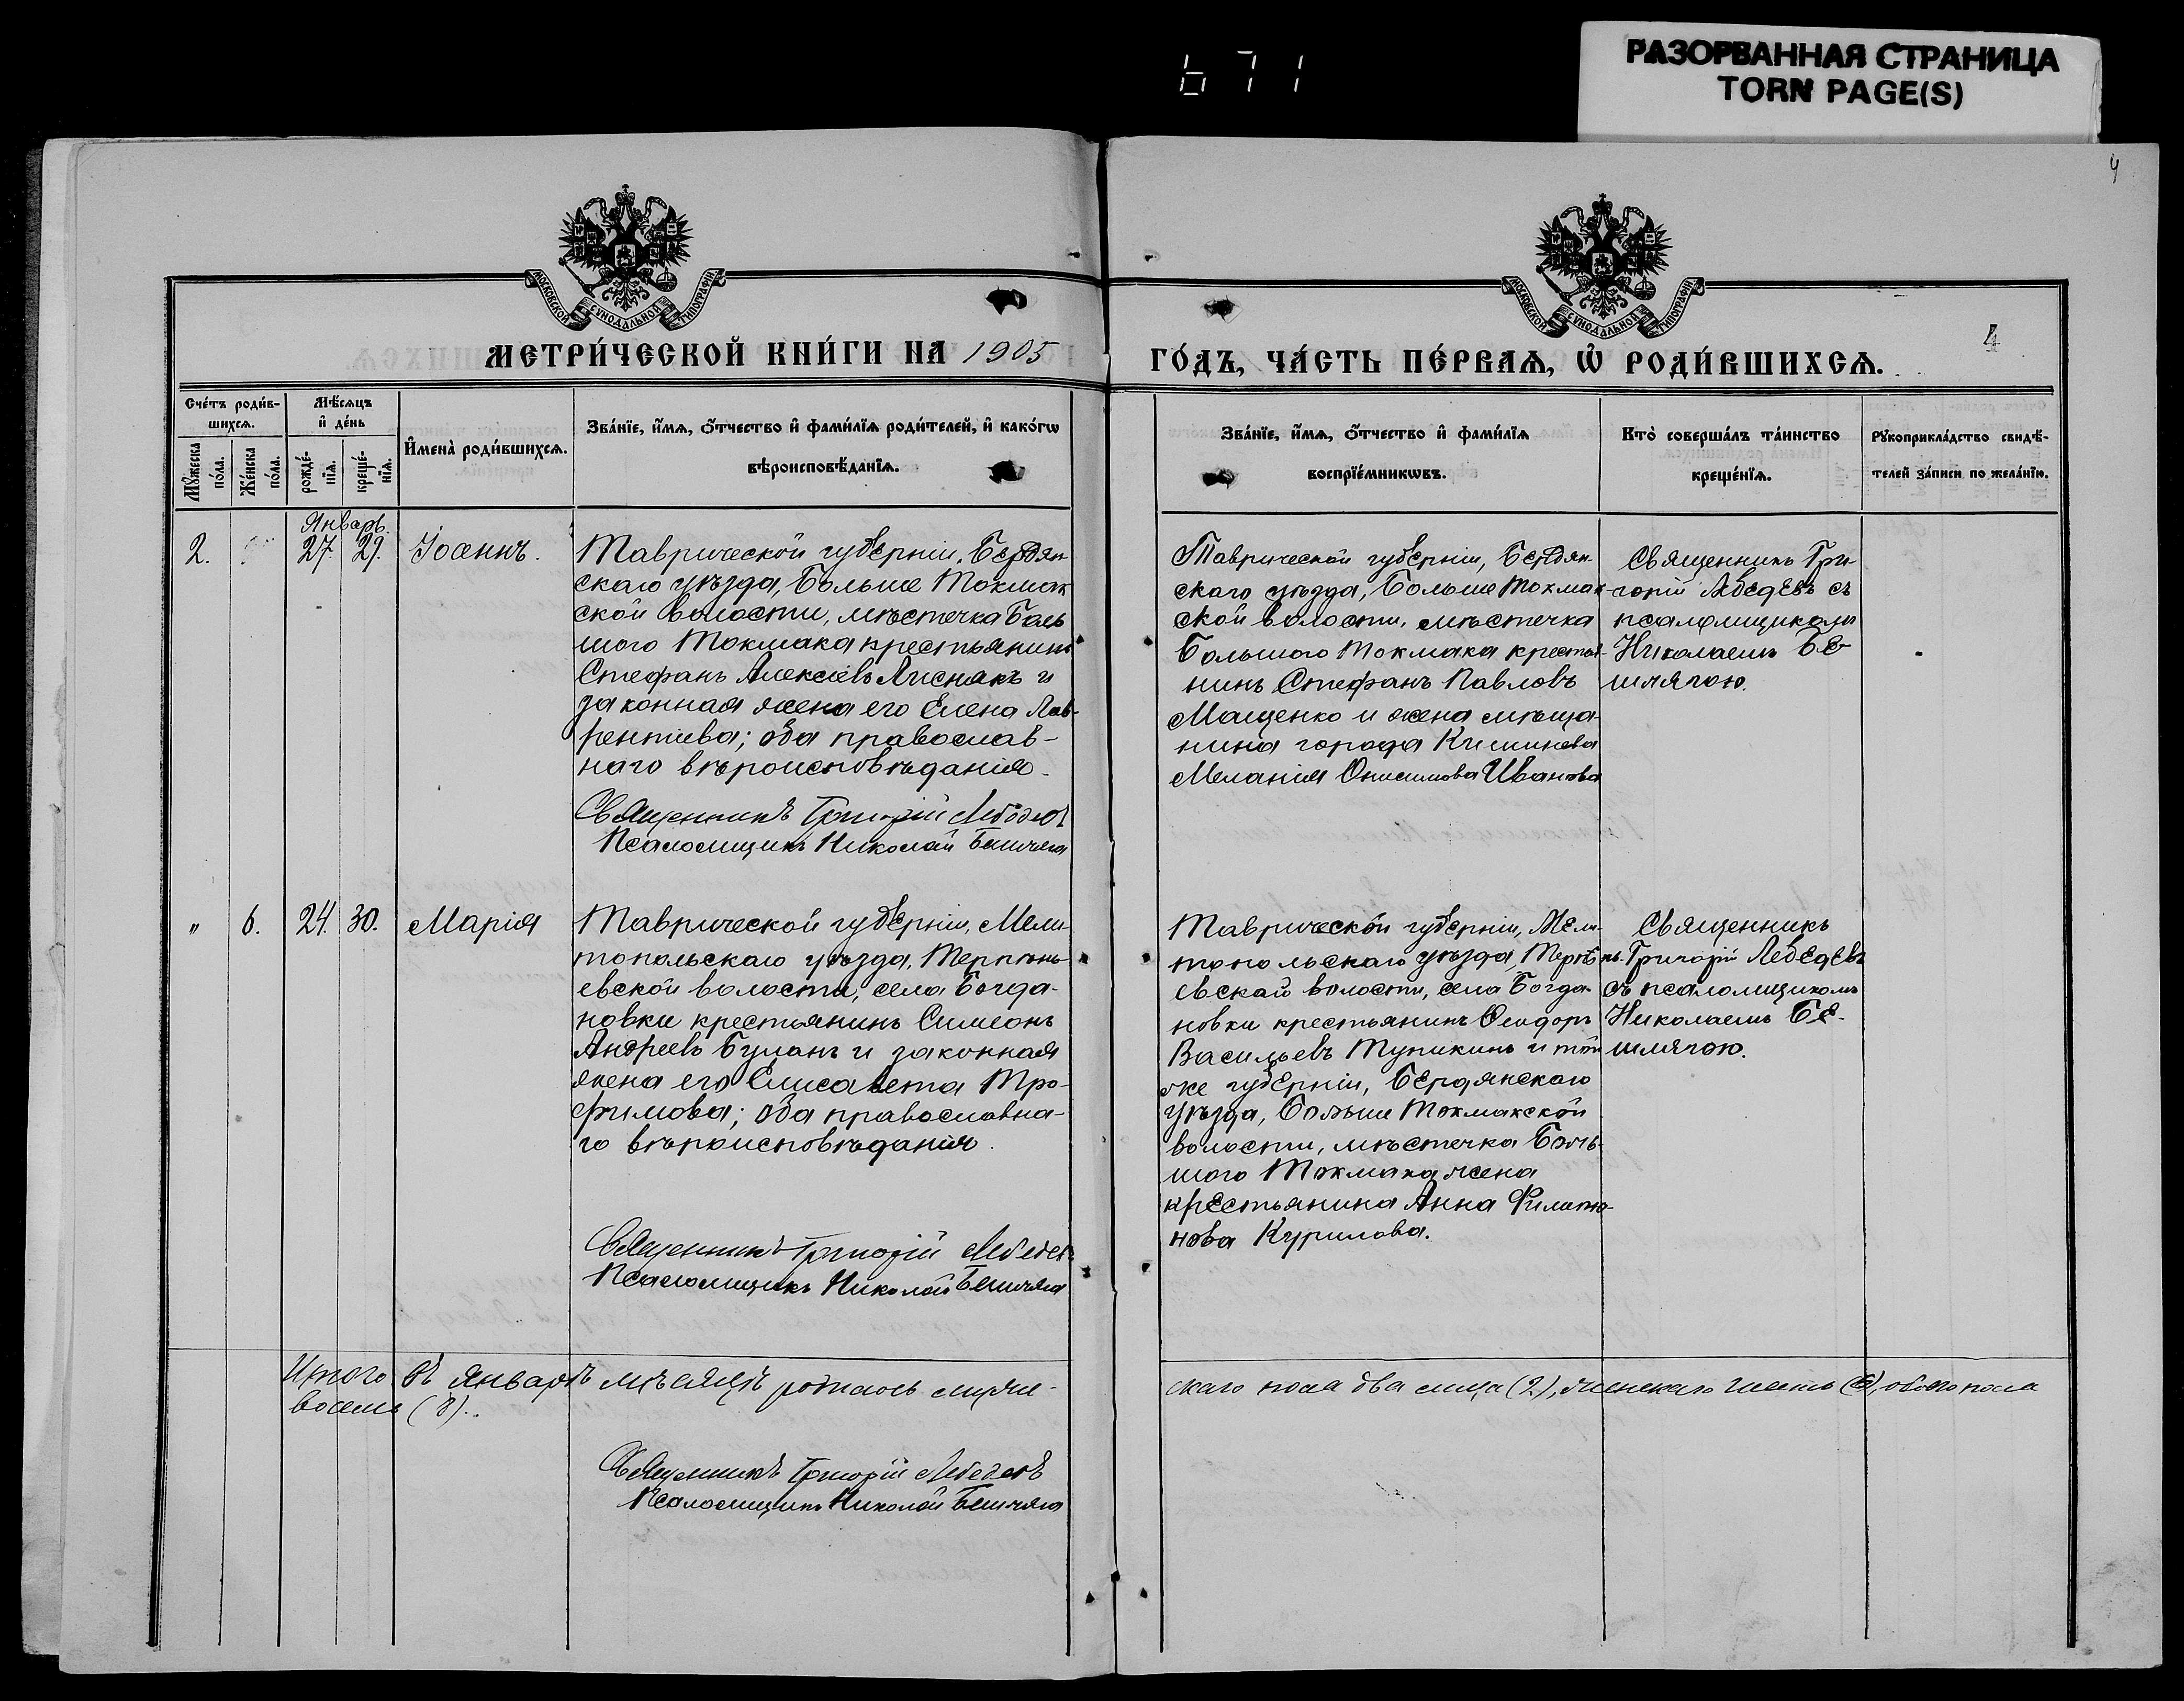 671
РАЗОРВАННАЯ СТРАНИЦА
TORN PAGE(S)
4
МОСКОВСКОЙ СѴНОДАЛЬНОЙ ТИПОГРАФІИ
МОСКОВСКОЙ СѴНОДАЛЬНОЙ ТИПОГРАФІИ
МЕТРИ́ЧЕСКОЙ КНИ́ГИ НА 1905
ГО́ДЪ, ЧА́СТЬ ПЕ́РВАѦ, Ѡ РОДИ́ВШИХСѦ.
4
Сче́тъ роди́в-
шихсѧ.
Мꙋ́жеска по́ла.
Же́нска по́ла.
Мѣ́сѧцъ
и҆ де́нь
рожде́-
нїѧ.
креще́-
нїѧ.
И҆мена̀ роди́вшихсѧ.
Зва́нїе, и҆́мѧ, ѻ҆́тчество и҆ фами́лїѧ роди́телей, и҆ како́гѡ
вѣроисповѣ́данїѧ.
Зва́нїе, и҆́мѧ, ѻ҆́тчество и҆ фами́лїѧ
воспрїе́мникѡвъ.
Кто̀ соверша́лъ та́инство
креще́нїѧ.
Рꙋкоприкла́дство свидѣ́-
телей за́писи по жела́нїю.
Январь.
2.
27.
29.
Іоаннъ.
Таврической губерніи, Бердян-
скаго уѣзда, Больше Токмак
ской волости, мѣстечка Боль
шого Токмака крестьянинъ
Стефанъ Алексіевъ Лиснякъ и
законная жена его Елена Лав-
рентіева; оба православ-
наго вѣроисповѣданія.
Священникъ Григорій Лебедевъ
Псаломщикъ Николай Бешляга
Таврической губерніи, Бердян-
скаго уѣзда, Больше Токмак-
ской волости, мѣстечка
Большого Токмака крестья-
нинъ Стефанъ Павловъ
Мащенко и жена мѣща-
нина города Кишинева
Меланія Онисимова Иванова
Священникъ Гри-
горій Лебедевъ съ
псаломщикомъ
Николаемъ Бе-
шлягою.
"
6.
24.
30.
Марія
Таврической губерніи, Мели-
топольскаго уѣзда, Терпѣнь-
евской волости, села Богда-
новки крестьянинъ Симеонъ
Андреевъ Буланъ и законная
жена его Елисавета Тро-
фимова; оба православна-
го вѣроисповѣданія.
Священникъ Григорій Лебедевъ
Псаломщикъ Николай Бешляга
Таврической губерніи, Мели-
топольскаго уѣзда, Терпѣнь-
евской волости, села Богда-
новки крестьянинъ Ѳеодоръ
Васильевъ Тупикинъ и той
же губерніи, Бердянскаго
уѣзда, Больше Токмакской
волости, мѣстечка Боль-
шого Токмака жена
крестьянина Анна Филимо-
нова Курилова.
Священникъ
Григорій Лебедевъ
съ псаломщикомъ
Николаемъ Бе-
шлягою.
Итого въ январѣ мѣсяцѣ родилось мужe-
скаго пола два лица (2), женскаго шесть (6), обоего пола
восемь (8).
Священникъ Григорій Лебедевъ
Псаломщикъ Николай Бешляга